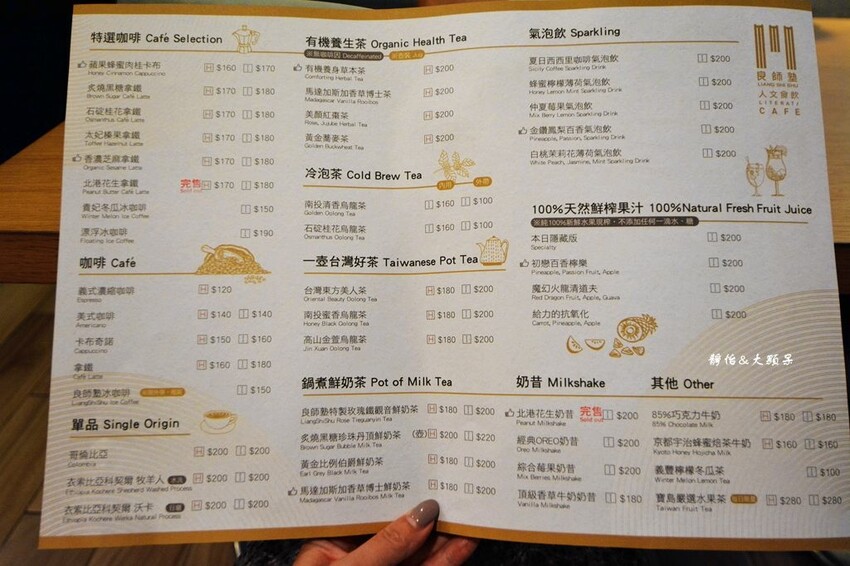 特選咖啡 Café Selection
蘋果蜂蜜肉桂卡布 H $160 I $170
Honey Cinnamon Cappuccino
炙燒黑糖拿鐵 H $170 I $180
Brown Sugar Café Latte
石碇桂花拿鐵 H $170 I $180
Osmanthus Café Latte
太妃榛果拿鐵 H $170 I $180
Toffee Hazelnut Latte
香濃芝麻拿鐵 H $170 I $180
Organic Sesame Latte
北港花生拿鐵 完售 Sold out H $170 I $180
Peanut Butter Café Latte
貴妃冬瓜冰咖啡 I $150
Winter Melon Ice Coffee
漂浮冰咖啡 I $190
Floating Ice Coffee
咖啡 Café
義式濃縮咖啡 H $120
Espresso
美式咖啡 H $140 I $140
Americano
卡布奇諾 H $150 I $160
Cappuccino
拿鐵 H $160 I $180
Café Latte
良師塾冰咖啡 I $150
LiangShiShu Ice Coffee
單品 Single Origin
哥倫比亞 H $200 I $200
Colombia
衣索比亞科契爾 牧羊人 水洗 H $200 I $200
Ethiopia Kochere Shepherd Washed Process
衣索比亞科契爾 沃卡 日曬 H $200 I $200
Ethiopia Kochere Werka Natural Process
有機養生茶 Organic Health Tea
※無咖啡因 Decaffeinated
有機養身草本茶 H $200
Comforting Herbal Tea
馬達加斯加香草博士茶 H $200
Madagascar Vanilla Rooibos
美顏紅棗茶 H $200
Rose, Jujube Herbal Tea
黃金蕎麥茶 H $200
Golden Buckwheat Tea
冷泡茶 Cold Brew Tea
內用 外帶
南投清香烏龍茶 I $160 I $100
Golden Oolong Tea
石碇桂花烏龍茶 I $160 I $100
Osmanthus Oolong Tea
一壺台灣好茶 Taiwanese Pot Tea
台灣東方美人茶 H $180 I $200
Oriental Beauty Oolong Tea
南投蜜香烏龍茶 H $180 I $200
Honey Black Oolong Tea
高山金萱烏龍茶 H $180 I $200
Jin Xuan Oolong Tea
鍋煮鮮奶茶 Pot of Milk Tea
良師塾特製玫瑰鐵觀音鮮奶茶 H $180 I $200
LiangShiShu Rose Tieguanyin Tea
炙燒黑糖珍珠丹頂鮮奶茶 (壺) H $220 I $220
Brown Sugar Bubble Milk Tea
黃金比例伯爵鮮奶茶 H $180 I $200
Earl Grey Black Milk Tea
馬達加斯加香草博士鮮奶茶 H $180 I $200
Madagascar Vanilla Rooibos Milk Tea
氣泡飲 Sparkling
夏日西西里咖啡氣泡飲 I $200
Sicily Coffee Sparkling Drink
蜂蜜檸檬薄荷氣泡飲 I $200
Honey Lemon Mint Sparkling Drink
仲夏莓果氣泡飲 I $200
Mix Berries Sparkling Drink
金鑽鳳梨百香氣泡飲 I $200
Pineapple, Passion, Sparkling Drink
白桃茉莉花薄荷氣泡飲 I $200
White Peach, Jasmine, Mint Sparkling Drink
良師塾
LIANG SHI SHU
人文會飲
LITERATI
CAFE
100%天然鮮榨果汁 100%Natural Fresh Fruit Juice
※純100%新鮮水果現榨，不添加任何一滴水、糖
本日隱藏版 I $200
Specialty
初戀百香檸樂 I $200
Pineapple, Passion Fruit, Apple
魔幻火龍清道夫 I $200
Red Dragon Fruit, Apple, Guava
給力的抗氧化 I $200
Carrot, Pineapple, Apple
靜怡&大顆呆
奶昔 Milkshake
北港花生奶昔 完售 Sold out I $200
Peanut Milkshake
經典OREO奶昔 I $200
Oreo Milkshake
綜合莓果奶昔 I $200
Mix Berries Milkshake
頂級香草牛奶奶昔 I $180
Vanilla Milkshake
其他 Other
85%巧克力牛奶 H $180 I $180
85% Chocolate Milk
京都宇治蜂蜜焙茶牛奶 H $160 I $160
Kyoto Honey Hojicha Milk
義豐檸檬冬瓜茶 I $100
Winter Melon Lemon Tea
寶島嚴選水果茶 每日限量 H $280 I $280
Taiwan Fruit Tea